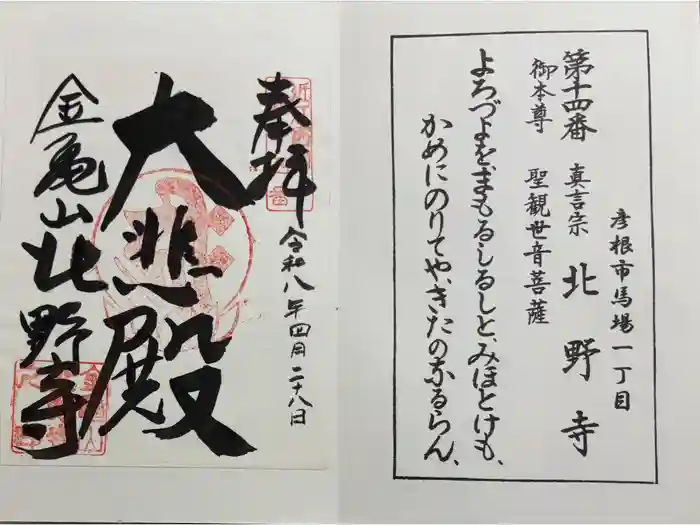 彦根市馬場一丁目
第十四番 真言宗 北野寺
御本尊 聖観世音菩薩
よろづよをまもるしるしと、みほとけも、
かめにのりてや、きたのなるらん、
奉拝
令和八年四月二十八日
大悲殿
金亀山北野寺